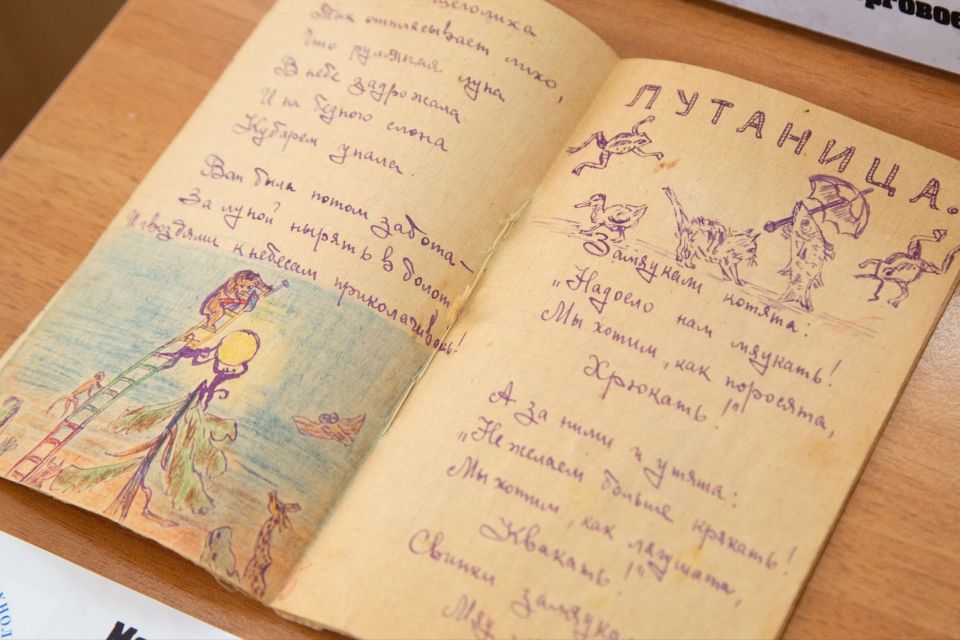 щеголиха
Так отплясывает лихо,
Что румяная луна
В небе задрожала
И на бедного слона
Кубарем упала.
Вот была потом забота –
За луной нырять в болото
И гвоздями к небесам приколачивать!
ПУТАНИЦА.
Замяукали котята:
„Надоело нам мяукать!
Мы хотим, как поросята,
Хрюкать!"
А за ними и утята:
„Не желаем больше крякать!
Мы хотим, как лягушата,
Квакать!"
Свинки замяука
Мяу
рговое